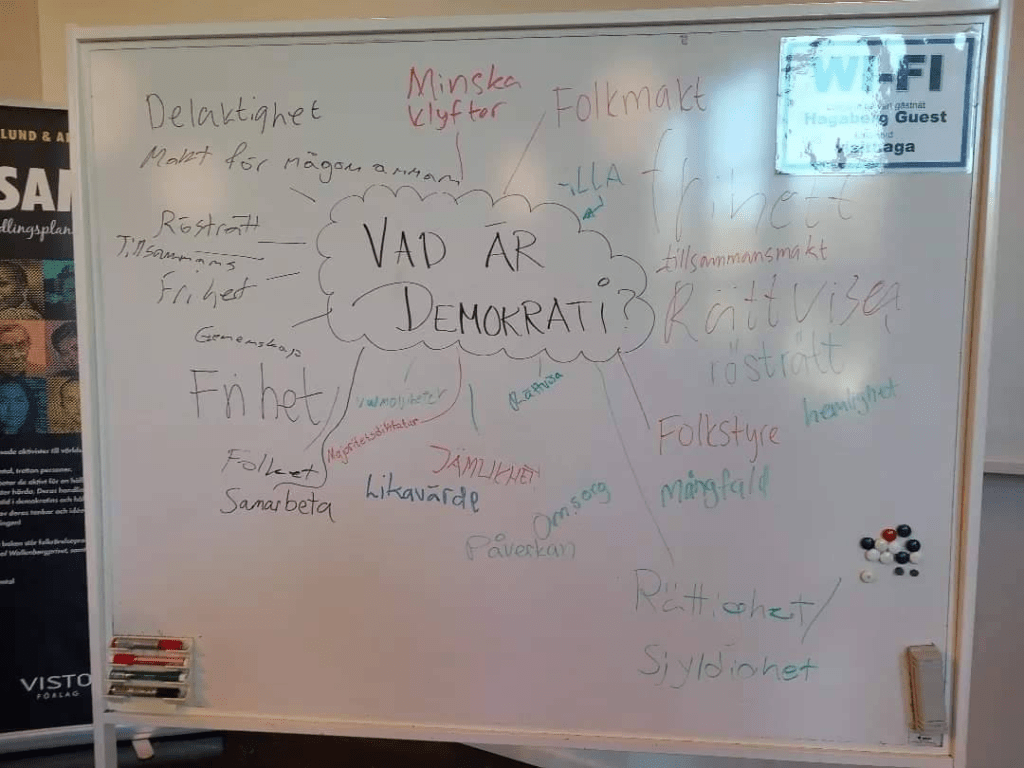 Delaktighet
Makt för någon annan
Minska
klyftor
Folkmakt
WI-FI
Hagaberg Guest
LUND & A
SAM
dlingsplan
ALLA
frihett
Rösträtt
Tillsammans
Frihet
VAD ÄR
DEMOKRATI?
tillsammansmakt
Rättvisea
rösträtt
hemlighet
Gemenskap
Frihet
Valmöjligheter
Rättvisa
Majoritetsdiktatur
Folkstyre
Folket
JÄMLIKHET
Samarbeta
Likavärde
mångfald
Omsorg
Påverkan
Rättighet/
Sjyldighet
VISTO
FÖRLAG